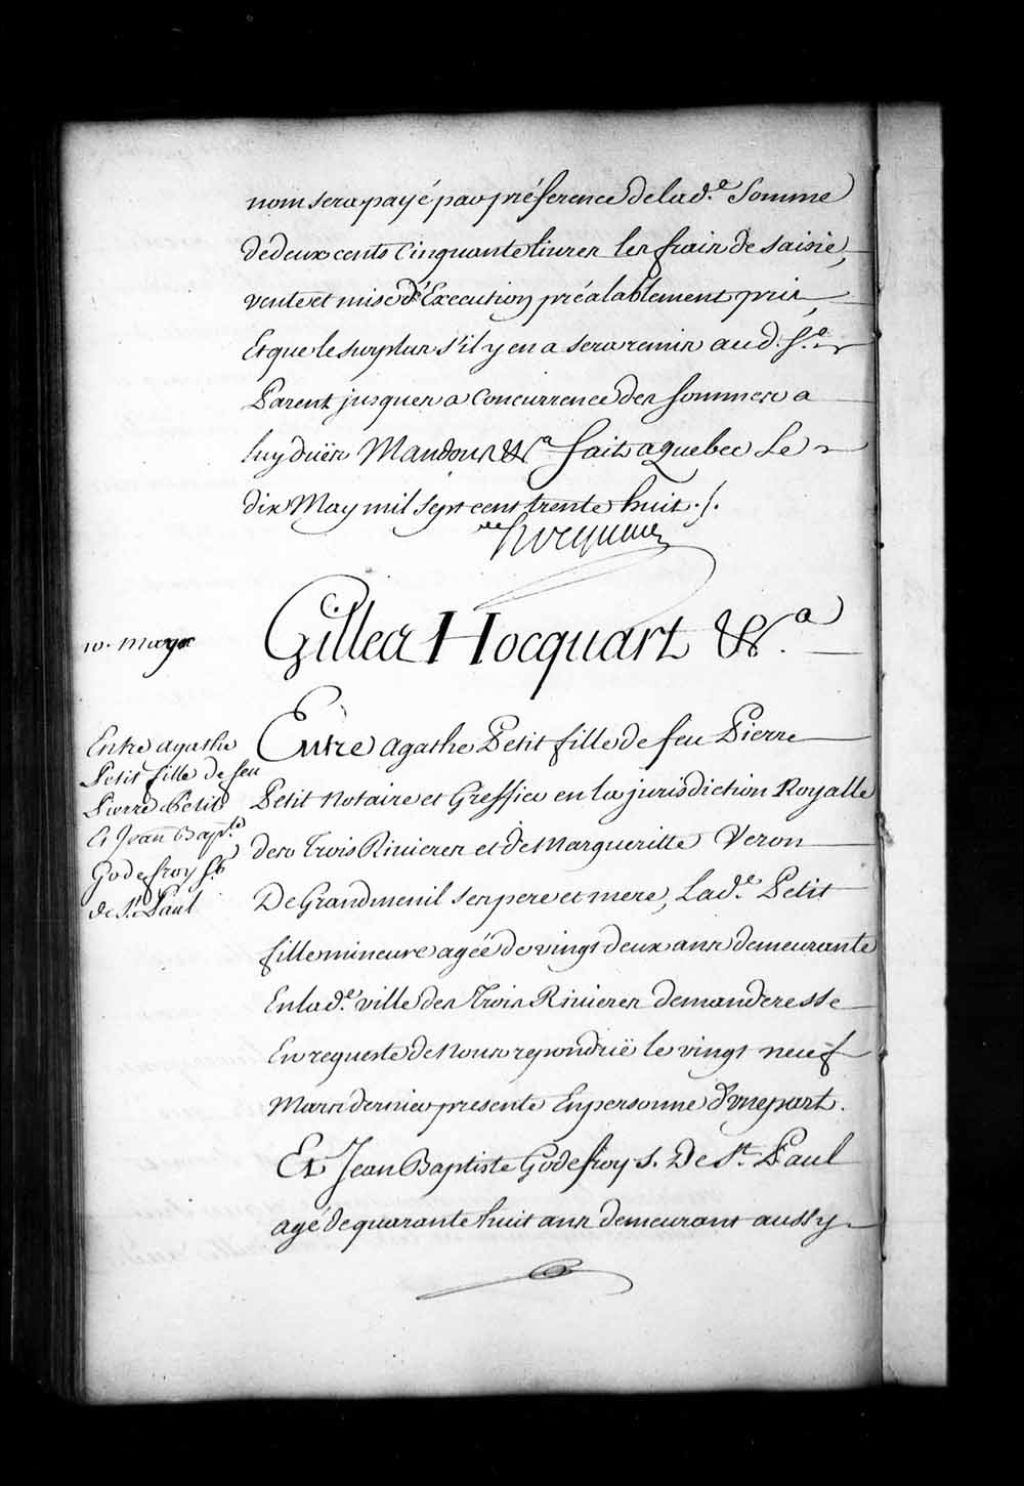 nom sera payé par préference de lad.e Somme
de deux cents Cinquante livres les frais de saisie,
vente et mise d'Execution préalablement pris,
Et que le surplus s'il y en a sera remis aud. S.r
Parent jusques a Concurrence des Sommes a
luy duës Mandons &.a fait a quebec Le
dix May mil Sept cent trente huit ./.
Hocquart
10. May
Gilles Hocquart &.a
Entre agathe
Petit fille de feu
Pierre Petit
Et Jean Bap.te
Godefroy S.r
de S.t Paul
Entre agathe Petit fille de feu Pierre
Petit Notaire et Greffier en la jurisdiction Royalle
des Trois Rivieres et de Margueritte Veron
De Grandmenil ses pere et mere, Lad.e Petit
fille mineure agée de vingt deux ans demeurante
En lad.e ville des Trois Rivieres demanderesse
En requeste de Nous repondüe le vingt neuf
Mars dernier presente En personne d'une part.
Et Jean Baptiste Godefroy S. De S.t Paul
agé de quarante huit ans demeurant aussy